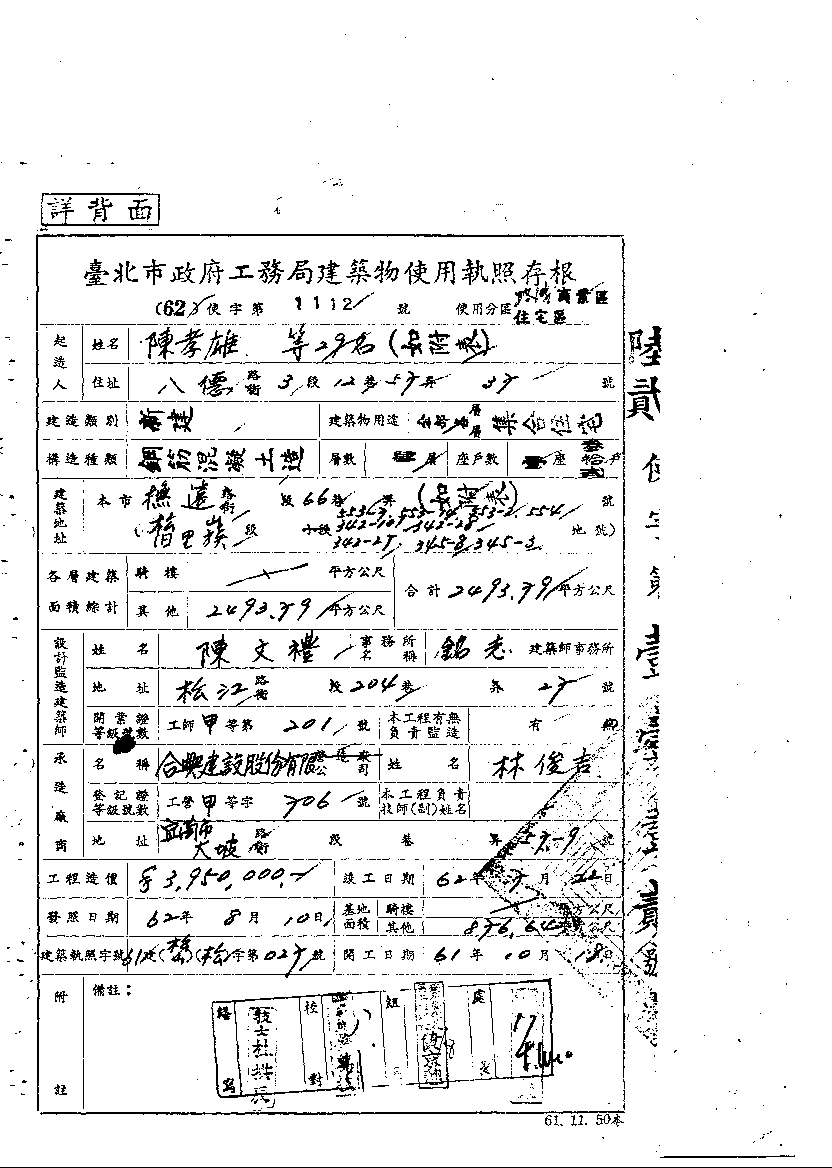 詳背面
臺北市政府工務局建築物使用執照存根
(62)使字第 1112 號 使用分區 商業區
住宅區
起造人 姓名 陳孝雄 等29名(如附表)
住址 八德路街 3段12巷57弄 37 號
建造類別 新建 建築物用途 層 集合住宅
構造種類 鋼筋混凝土造 層數 層 座戶數 座 戶
建築地址 本市 撫遠路街 段66巷 弄 (如附表) 號
段 小段 553-2, 554 342-28 342-27, 345-8, 345-3 地號)
各層建築面積綜計 騎樓 平方公尺 合計 2493.79 平方公尺
其他 2493.79 平方公尺
設計監造建築師 姓名 陳文禮 事務所名稱 銘志 建築師事務所
地址 松江路街 段204巷 弄 27 號
開業證等級號數 工師甲等第 201 號 本工程有無負責監造 有
承造廠商 名稱 合興建設股份有限公司 姓名 林俊吉
登記證等級號數 工營甲等字 706 號 本工程負責技師(副)姓名
地址 宜蘭市大坡路街 段 巷 弄 57-9 號
工程造價 3,950,000.- 竣工日期 62年7月22日
發照日期 62年8月10日 基地面積 騎樓 平方公尺
其他 876.64 平方公尺
建築執照字號 61建(松)(松)字第027號 開工日期 61年10月18日
附註 備註:
繕寫 校對 組長 處長
陸貳使字第壹壹壹貳號
61.11.50本